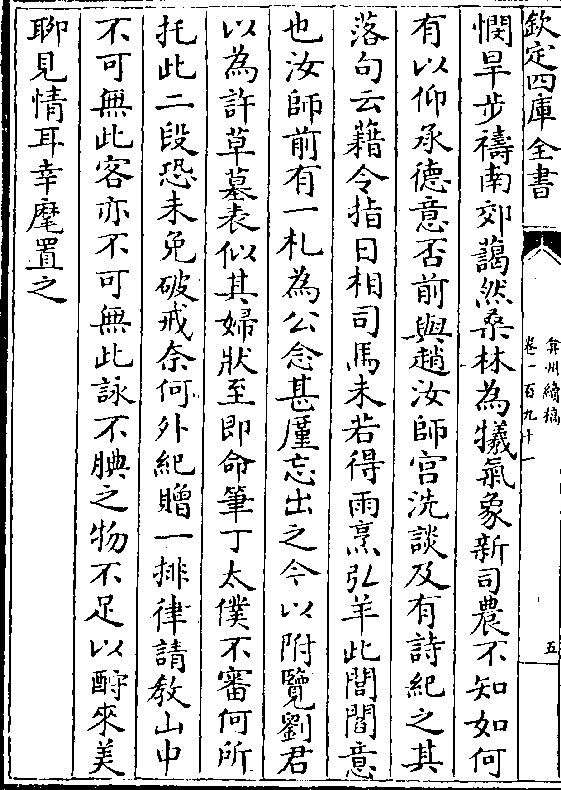 欽定四庫全書
弇州續稿
卷一百九十一
五
憫旱步禱南郊藹然桑林為犧氣象新司農不知如何
有以仰承德意否前與趙汝師宫洗談及有詩紀之其
落句云藉令指日相司馬未若得雨烹弘羊此閭閻意
也汝師前有一札為公念甚廑忘出之今以附覽劉君
以為許草墓表似其婦狀至即命筆丁太僕不審何所
托此二段恐未免破戒奈何外紀贈一排律請教山中
不可無此客亦不可無此詠不腆之物不足以酧來美
聊見情耳幸麾置之